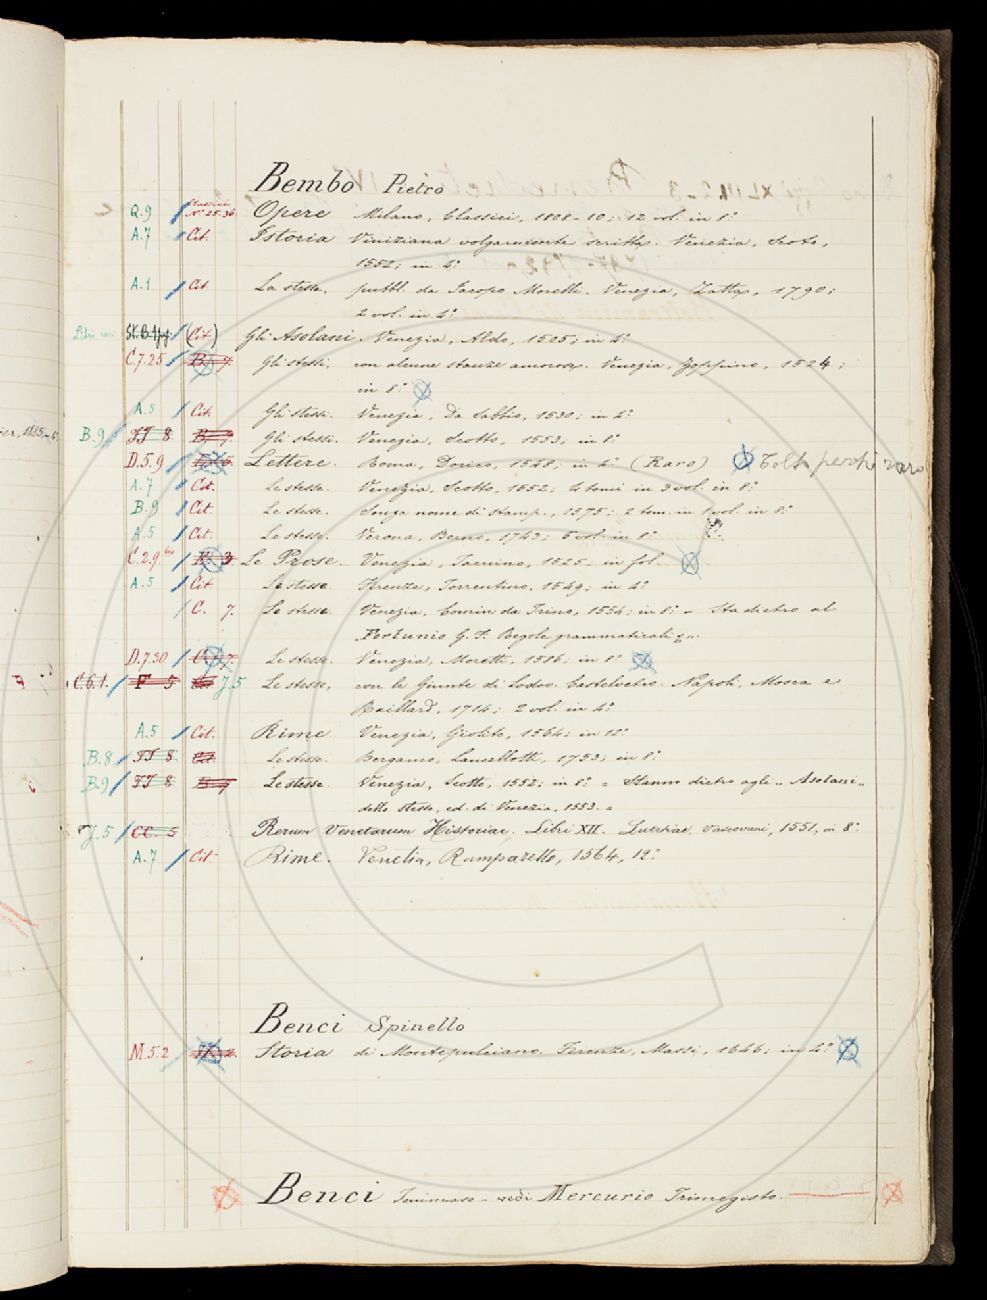 Bembo Pietro
Q.9 Classici N.º 25.36 Opere Milano, Classici, 1808-10; 12 vol. in 8.º
A.7 Cit. Istoria Viniziana volgarmente scritta. Venezia, Scoto,
1552; in 4.º
A.1 Cit La stessa, pubbl. da Jacopo Morelli. Venezia, Zatta, 1790;
2 vol. in 4.º
Libri rari (Cit) Gli Asolani. Venezia, Aldo, 1505; in 4.º
C.7.25 B. 7. Gli stessi, con alcune stanze amorose. Venezia, Zoppino, 1524;
in 8.º
A.5 Cit. Gli stessi. Venezia, Da Sabbio, 1530; in 4.º
B.9 FF 8 B. 7. Gli stessi. Venezia, Scotto, 1553; in 8.º
D.5.9 Lettere. Roma, Dorico, 1548; in 4.º (Raro) Tolto perché raro
A.7 Cit. Le stesse. Venezia, Scotto, 1552; 4 tomi in 3 vol. in 8.º
B.9 Cit. Le stesse. Senza nome di stamp., 1575; 2 tom. in 1 vol. in 8.º
A.5 Cit. Le stesse. Verona, Berno, 1743; 5 vol. in 8.º
C.2.9 bis 3 Le Prose. Venezia, Tacuino, 1525; in fol.
A.5 Cit Le stesse. Firenze, Torrentino, 1549; in 4.º
C. 7. Le stesse. Venezia, Comin da Trino, 1554; in 8.º - Sta dietro al
Fortunio G. F. Regole grammaticali
D.7.30 C. 7. Le stesse. Venezia, Moretti, 1586; in 8.º
C.6.1. F 5 J.5 Le stesse, con le Giunte di Lodov. Castelvetro. Napoli, Mosca e
Raillard, 1714; 2 vol. in 4.º
A.5 Cit. Rime. Venezia, Giolito, 1564; in 12.º
B.8 FF 8 Cit. Le stesse. Bergamo, Lancellotti, 1753; in 8.º
B.9 FF 8 B 7 Le stesse. Venezia, Scotto, 1552; in 8.º = Stanno dietro agli „Asolani„
dello stesso, ed. di Venezia, 1553. =
J.5 CC. 5 Rerum Venetarum Historiae. Libri XII. Lutetiae, Vascovani, 1551, in 8.º
A.7 Cit. Rime. Venetia, Rampazetto, 1564, 12.º
Benci Spinello
M.5.2 Storia di Montepulciano. Firenze, Massi, 1646; in 4.º
Benci Tommaso - vedi Mercurio Trimegisto.